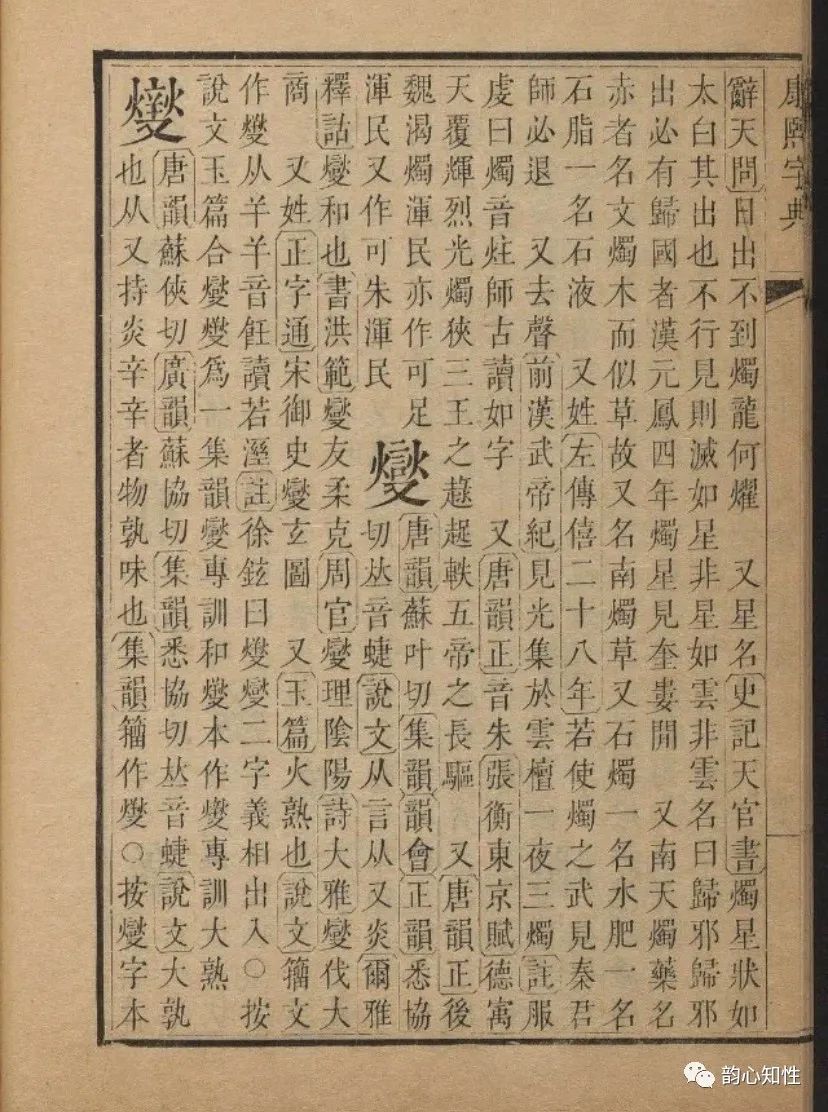 康熙字典
辭天問日出不到燭龍何燿 又星名史記天官書燭星狀如
太白其出也不行見則滅如星非星如雲非雲名曰歸邪歸邪
出必有歸國者漢元鳳四年燭星見奎婁閒 又南天燭藥名
赤者名文燭木而似草故又名南燭草又石燭一名水肥一名
石脂一名石液 又姓左傳僖二十八年若使燭之武見秦君
師必退 又去聲前漢武帝紀見光集於雲壇一夜三燭註服
虔曰燭音炷師古讀如字 又唐韻正音朱張衡東京賦德寓
天覆輝烈光燭狹三王之趢趗軼五帝之長驅 又唐韻正後
魏渴燭渾民亦作可足
渾民又作可朱渾民
燮唐韻蘇叶切集韻韻會正韻悉協
切𠀤音蜨說文从言从又炎爾雅
釋詁燮和也書洪範燮友柔克周官燮理陰陽詩大雅燮伐大
商 又姓正字通宋御史燮玄圖 又玉篇火熟也說文籀文
作燮从羊羊音飪讀若溼註徐鉉曰燮燮二字義相出入○按
說文玉篇合燮燮爲一集韻燮專訓和燮本作燮專訓大熟
燮唐韻蘇俠切廣韻蘇協切集韻悉協切𠀤音蜨說文大孰
也从又持炎辛辛者物孰味也集韻籀作燮○按燮字本
韵心知性